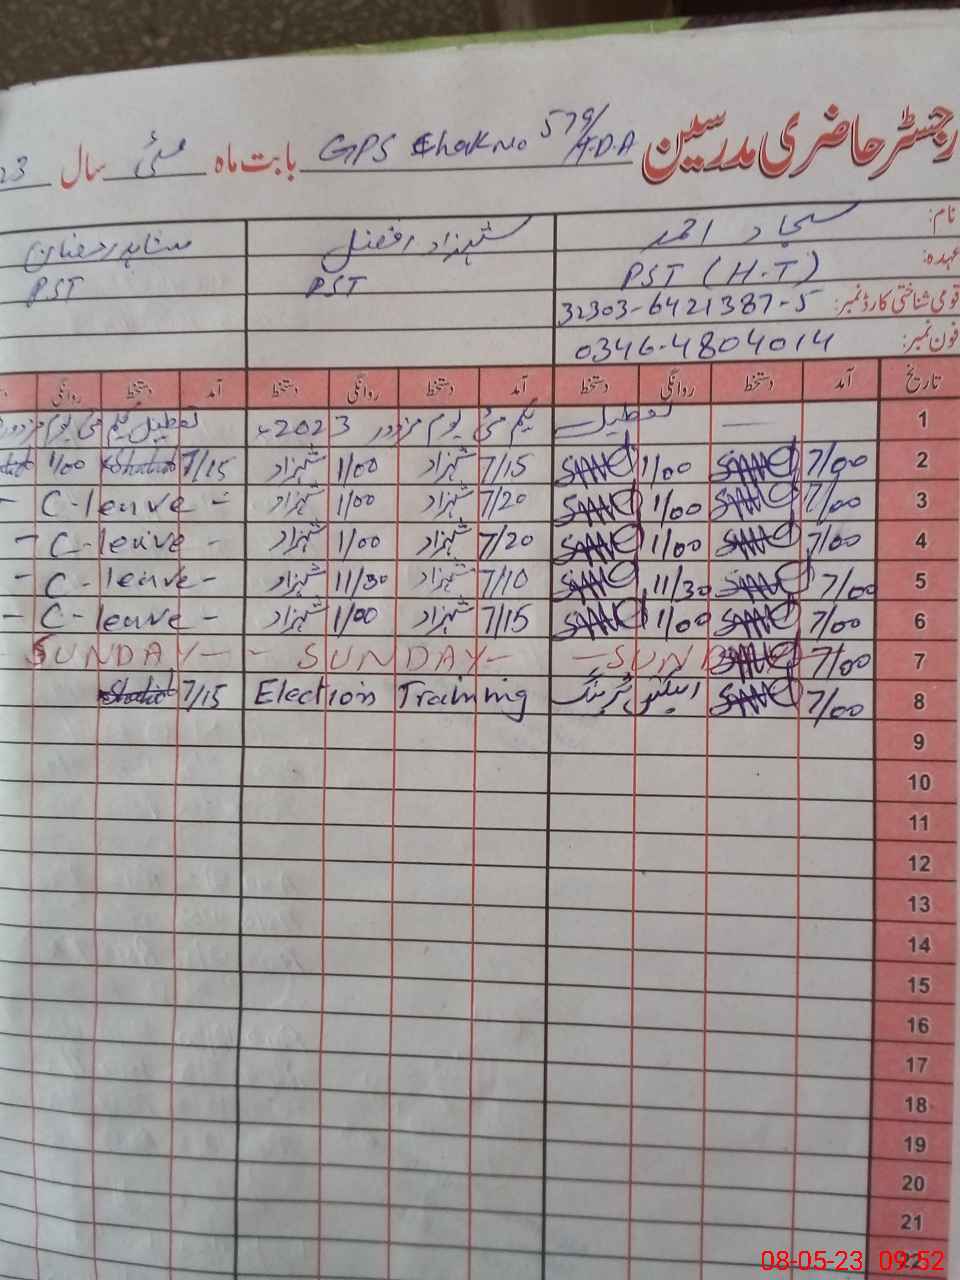 رجسٹر حاضری مدرسین GPS Chak no 579/TDA بابت ماہ مئی سال 23
نام: سجاد احمد شہزاد افضل شاہد رمضان
عہدہ: PST (H.T) PST PST
قومی شناختی کارڈ نمبر: 32303-6421387-5
فون نمبر: 0346-4804014
تاریخ آمد دستخط روانگی دستخط آمد دستخط روانگی دستخط آمد دستخط روانگی
1 — تعطیل یکم مئی یوم مزدور 2023ء تعطیل یکم مئی یوم مزدور
2 7/00 1/00 7/15 شہزاد 1/00 شہزاد 7/15 Shahid 1/00
3 7/00 1/00 7/20 شہزاد 1/00 شہزاد - C-leave -
4 7/00 1/00 7/20 شہزاد 1/00 شہزاد - C-leave -
5 7/00 11/30 7/10 شہزاد 11/30 شہزاد - C-leave -
6 7/00 1/00 7/15 شہزاد 1/00 شہزاد - C-leave -
7 7/00 - SUND - SUNDAY - SUNDAY -
8 7/00 الیکشن ٹریننگ Election Training 7/15 Shahid
9
10
11
12
13
14
15
16
17
18
19
20
21
22
08-05-23 09:52